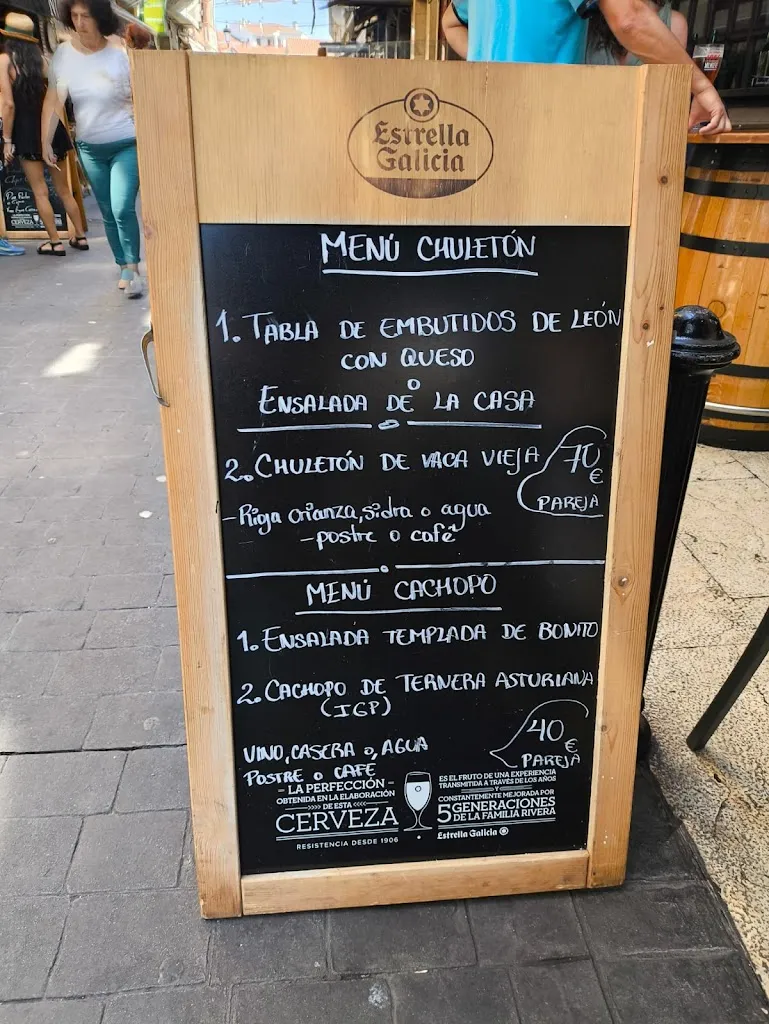 Estrella
Galicia
MENÚ CHULETÓN
1. TABLA DE EMBUTIDOS DE LEÓN
CON QUESO
O
ENSALADA DE LA CASA
2. CHULETÓN DE VACA VIEJA
70
€
PAREJA
-Rioja crianza, sidra o agua
-postre o café
MENÚ CACHOPO
1. ENSALADA TEMPLADA DE BONITO
2. CACHOPO DE TERNERA ASTURIANA
(IGP)
40
€
PAREJA
VINO, CASERA o, AGUA
POSTRE o CAFE
- LA PERFECCIÓN -
OBTENIDA EN LA ELABORACIÓN
DE ESTA
CERVEZA
RESISTENCIA DESDE 1906
ES EL FRUTO DE UNA EXPERIENCIA
TRANSMITIDA A TRAVÉS DE LOS AÑOS
Y
CONSTANTEMENTE MEJORADA POR
5 GENERACIONES
DE LA FAMILIA RIVERA
Estrella Galicia
CERVEZA